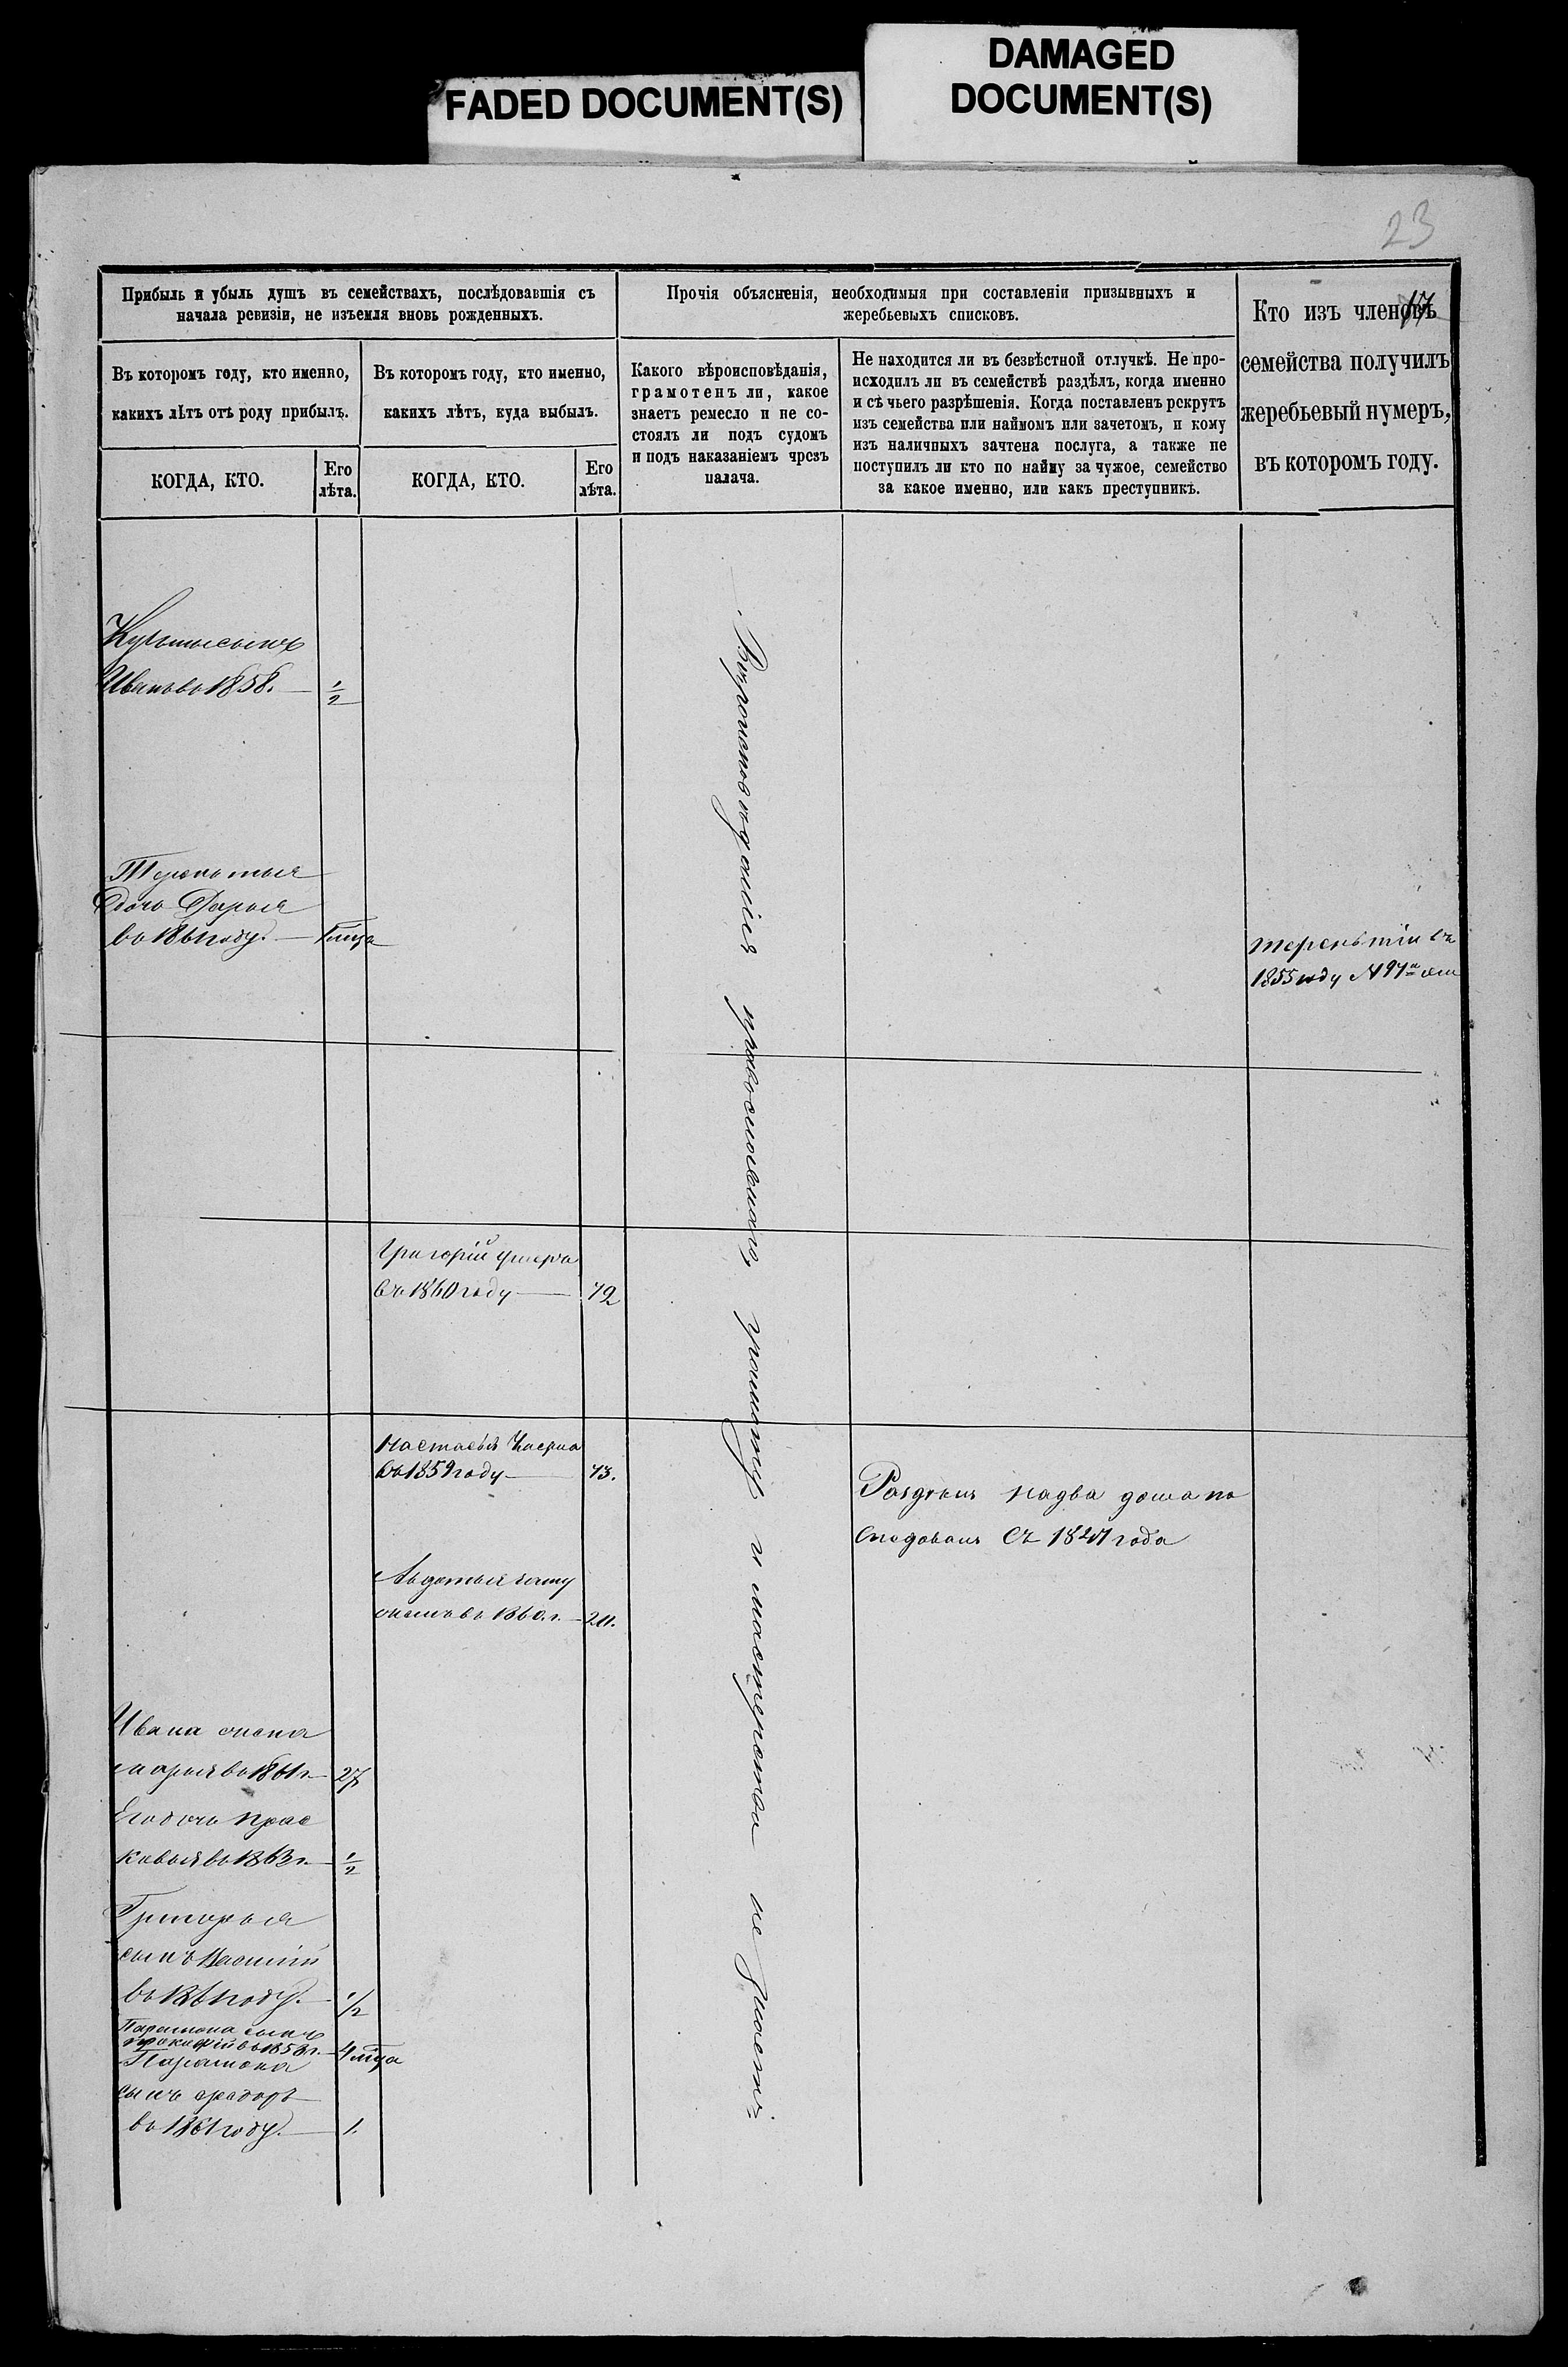 FADED DOCUMENT(S)
DAMAGED
DOCUMENT(S)
23
17
Прибыль и убыль душъ въ семействахъ, послѣдовавшія съ
начала ревизіи, не изъемля вновь рожденныхъ.
Прочія объясненія, необходимыя при составленіи призывныхъ и
жеребьевыхъ списковъ.
Кто изъ членовъ
семейства получилъ
жеребьевый нумеръ,
въ которомъ году.
Въ которомъ году, кто именно,
какихъ лѣтъ отъ роду прибылъ.
Въ которомъ году, кто именно,
какихъ лѣтъ, куда выбылъ.
Какого вѣроисповѣданія,
грамотенъ ли, какое
знаетъ ремесло и не со-
стоялъ ли подъ судомъ
и подъ наказаніемъ чрезъ
палача.
Не находится ли въ безвѣстной отлучкѣ. Не про-
исходилъ ли въ семействѣ раздѣлъ, когда именно
и съ чьего разрѣшенія. Когда поставленъ рекрутъ
изъ семейства или наймомъ или зачетомъ, и кому
изъ наличныхъ зачтена послуга, а также не
поступилъ ли кто по найму за чужое, семейство
за какое именно, или какъ преступникъ.
КОГДА, КТО.
Его
лѣта.
КОГДА, КТО.
Его
лѣта.
сынъ
Иванъ во 1858. 1/2
Терентья
дочь Дарья
во 1861 году.
терентiи въ
1855 году №
Григорiй умеръ
въ 1860 году 72
Настасья умерла
въ 1859 году 73.
Авдотья заму
жемъ въ 1860. г.
Вероисповеданiя православнаго грамоту и мастерства не знаетъ.
Разделъ на два дома по
следовалъ Съ 18 года
Ивана жена
марья во 1861 г. 27
Его дочь Прас
ковья во 1863 г. 1/2
Григорья
сынъ Василiй
во 1861 году. 1/2
Парамона сынъ
во 1858 г.
Парамона
сынъ Федоръ
во 1861 году. 1.